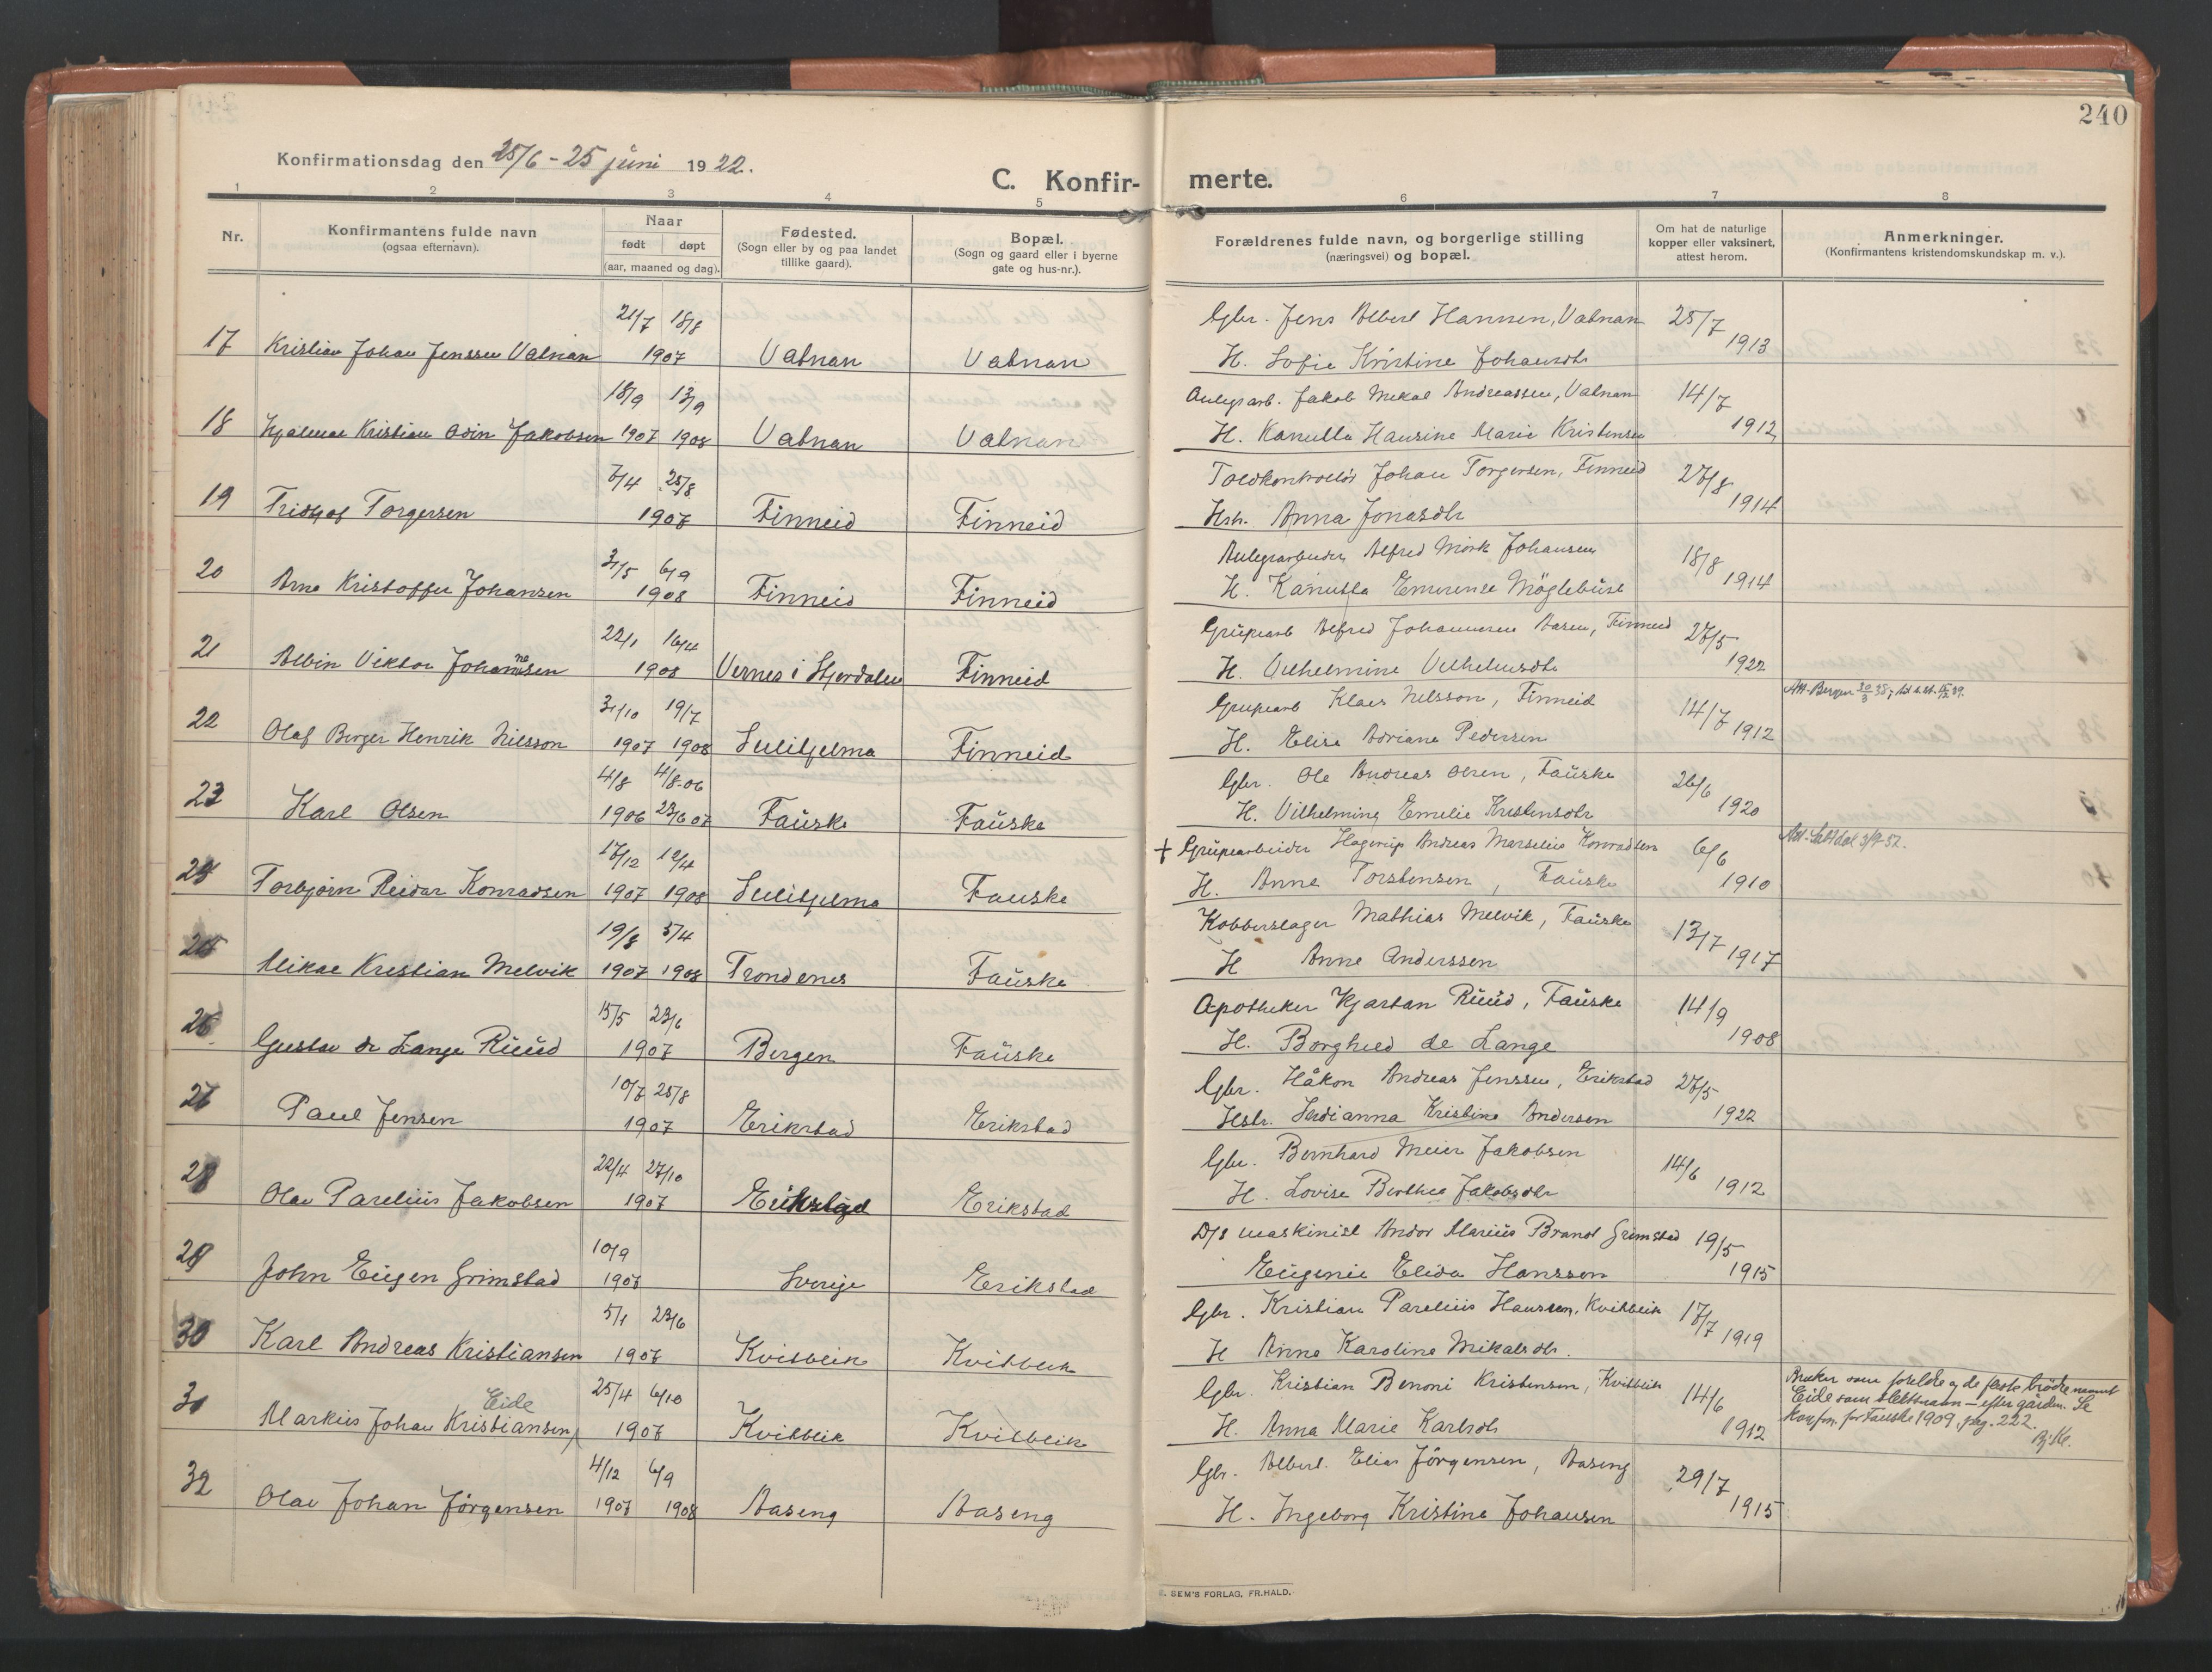 240
Konfirmationsdag den 25/6 - 25 juni 1922.
C. Konfirmerte.
1 2 3 4 5 6 7 8
Nr.
Konfirmantens fulde navn
(ogsaa efternavn).
Naar
født døpt
(aar, maaned og dag).
Fødested.
(Sogn eller by og paa landet
tillike gaard).
Bopæl.
(Sogn og gaard eller i byerne
gate og hus-nr.).
Forældrenes fulde navn, og borgerlige stilling
(næringsvei) og bopæl.
Om hat de naturlige
kopper eller vaksinert,
attest herom.
Anmerkninger.
(Konfirmantens kristendomskundskap m. v.).
21/7 18/8 Gbr. Jens Albert Hansen, Vatnan 25/7
17 Kristian Johan Jenssen Vatnan 1907 Vatnan Vatnan H. Sofie Kristine Johansdtr 1913
18/9 13/9 Anlegsarb. Jakob Mekal Andreassen, Vatnan 14/7
18 Hjalmar Kristian Odin Jakobsen 1907 1908 Vatnan Vatnan H. Kanutta Hansine Marie Kristensen 1912
7/4 25/8 Toldkontrollør Johan Torgersen, Finneid 27/8
19 Tridtjof Torgersen 1907 Finneid Finneid Hsh. Anna Jonasdtr 1914
31/5 6/9 Anlegsarbeider Alfred Mörk Johansen 18/8
20 Arne Kristoffer Johansen 1908 Finneid Finneid H. Kanutta Emerense Möglebust 1914
22/1 16/4 Grubearb Alfred Johannesen Aasen, Finneid 27/5
21 Albin Viktor Johannesen 1908 Vernes i Stjordalen Finneid H. Vilhelmine Vilhelmsdtr 1922
31/10 19/7 Grubearb Klaes Nilsson, Finneid 14/7 Att. Bergen 30/3 38,
22 Olaf Berger Henrik Nilsson 1907 1908 Sulitjelma Finneid H. Elise Adriane Pedersen 1912
4/8 4/8-06 Gbr. Ole Andreas Olsen, Fauske 26/6
23 Karl Olsen 1906 23/6 07 Fauske Fauske H. Vilhelmine Emelie Kristensdtr 1920
17/12 12/4 + Grubearbeider Hagerup Andreas Marselius Konradsen 6/6 Att. Saltdal 3/9-57.
24 Torbjørn Reidar Konradsen 1907 1908 Sulitjelma Fauske H. Anna Torstensen, Fauske 1910
19/8 5/4 Kobberslager Mathias Melvik, Fauske 13/7
25 Mikal Kristian Melvik 1907 1908 Trondenes Fauske H Anne Anderssen 1917
15/5 23/6 Apotheker Kjartan Ruud, Fauske 14/9
26 Gustav de Lange Ruud 1907 Bergen Fauske H. Borghild de Lange 1908
10/7 25/8 Gbr. Håkon Andreas Jenssen, Erikstad 27/5
27 Paul Jensen 1907 Erikstad Erikstad Hstr. Serdianna Kristine Andersen 1922
22/4 27/10 Gbr. Bernhard Meier Jakobsen 14/6
28 Olav Parelius Jakobsen 1907 Erikstad Erikstad H. Lovise Berthea Jakobsdtr 1912
10/9 D/s maskinist Andor Marius Brandt Grimstad 19/5
29 John Eugen Grimstad 1907 Sverige Erikstad Eugenie Elida Hansson 1915
5/1 23/6 Gbr. Kristian Parelius Hanssen, Kvitblik 17/7
30 Karl Andreas Kristiansen 1907 Kvitblik Kvitblik H Anna Karoline Mikalsdtr. 1919
Eide 25/4 6/10 Gbr. Kristian Benoni Kristensen, Kvitblik 14/6
31 Markus Johan Kristiansen 1907 Kvitblik Kvitblik H. Anna Marie Karlsdtr 1912
Bruker som foreldre og de fleste brödre navnet
Eide som slektsnavn - efter gården. Se
Konfirm. for Fauske 1909, pag. 222.
4/12 6/9 Gbr. Albert Elias Jörgensen, Aaseng 29/7
32 Olav Johan Jörgensen 1907 1908 Aaseng Aaseng H. Ingeborg Kristine Johansen 1915
SEM'S FORLAG, FR.HALD.